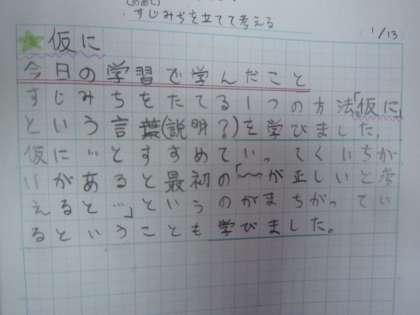 すじみちを立てて考える
1/13
仮に
今日の学習で学んだこと
すじみちをたてる1つの方法「仮に」
という言葉(説明?)を学びました。
仮に…とすすめていってくいちが
いがあると最初の「~~が正しいと考
えると…」というのがまちがってい
るということも学びました。